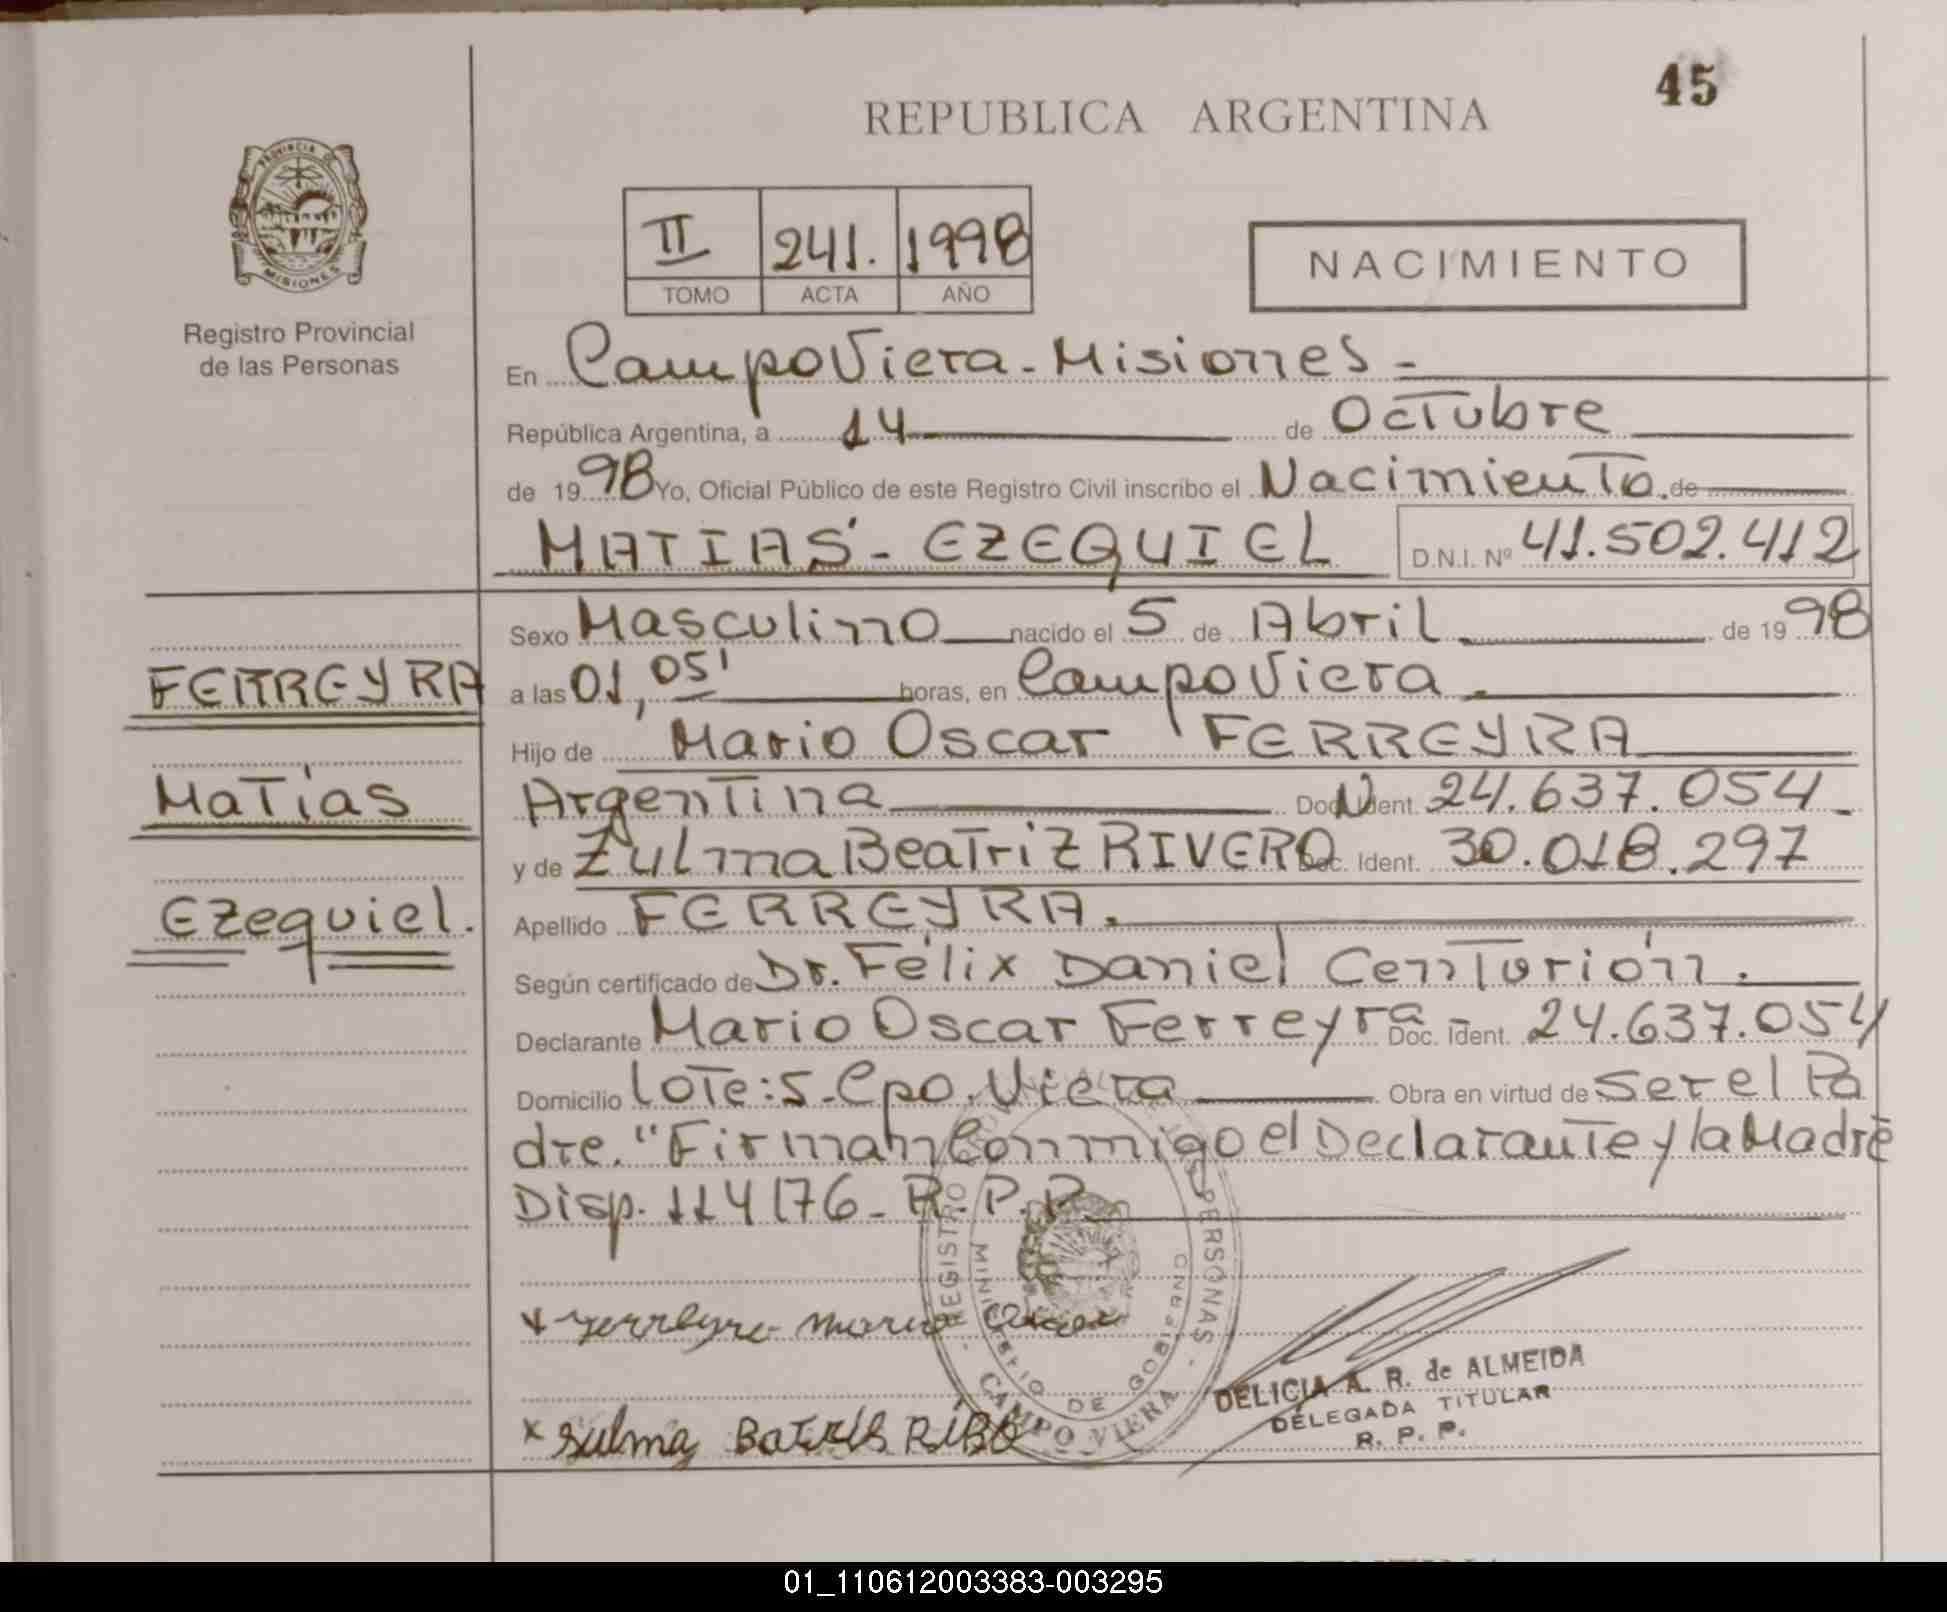 45
REPUBLICA ARGENTINA
PROVINCIA DE
MISIONES
Registro Provincial
de las Personas
II 241. 1998
TOMO ACTA AÑO
NACIMIENTO
En Campo Viera - Misiones -
República Argentina, a 14 de Octubre
de 1998 Yo, Oficial Público de este Registro Civil inscribo el Nacimiento. de
MATIAS - EZEQUIEL D.N.I. Nº 41.502.412
FERREYRA
Matías
Ezequiel.
Sexo Masculino nacido el 5 de Abril de 1998
a las 01,05' horas, en Campo Viera.
Hijo de Mario Oscar FERREYRA
Argentina Doc. Ident. N 24.637.054
y de Zulma Beatriz RIVERO Doc. Ident. 30.018.297
Apellido FERREYRA.
Según certificado de Dr. Félix Daniel Centurión.
Declarante Mario Oscar Ferreyra - Doc. Ident. 24.637.054
Domicilio Lote: 5 - Cpo. Viera Obra en virtud de Ser el Pa
dre. "Firman Conmigo el Declarante y la Madre
Disp. 114/76 - R. P. P.
REGISTRO PERSONAS
MINISTERIO DE GOBIERNO
CAMPO VIERA
x Ferreyra Mario Oscar
x Sulma
DELICIA A. R. de ALMEIDA
DELEGADA TITULAR
R. P. P.
01_110612003383-003295